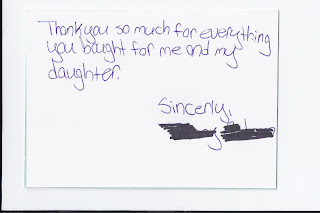 Thank you so much for everything
you bought for me and my
daughter.
Sincerly,